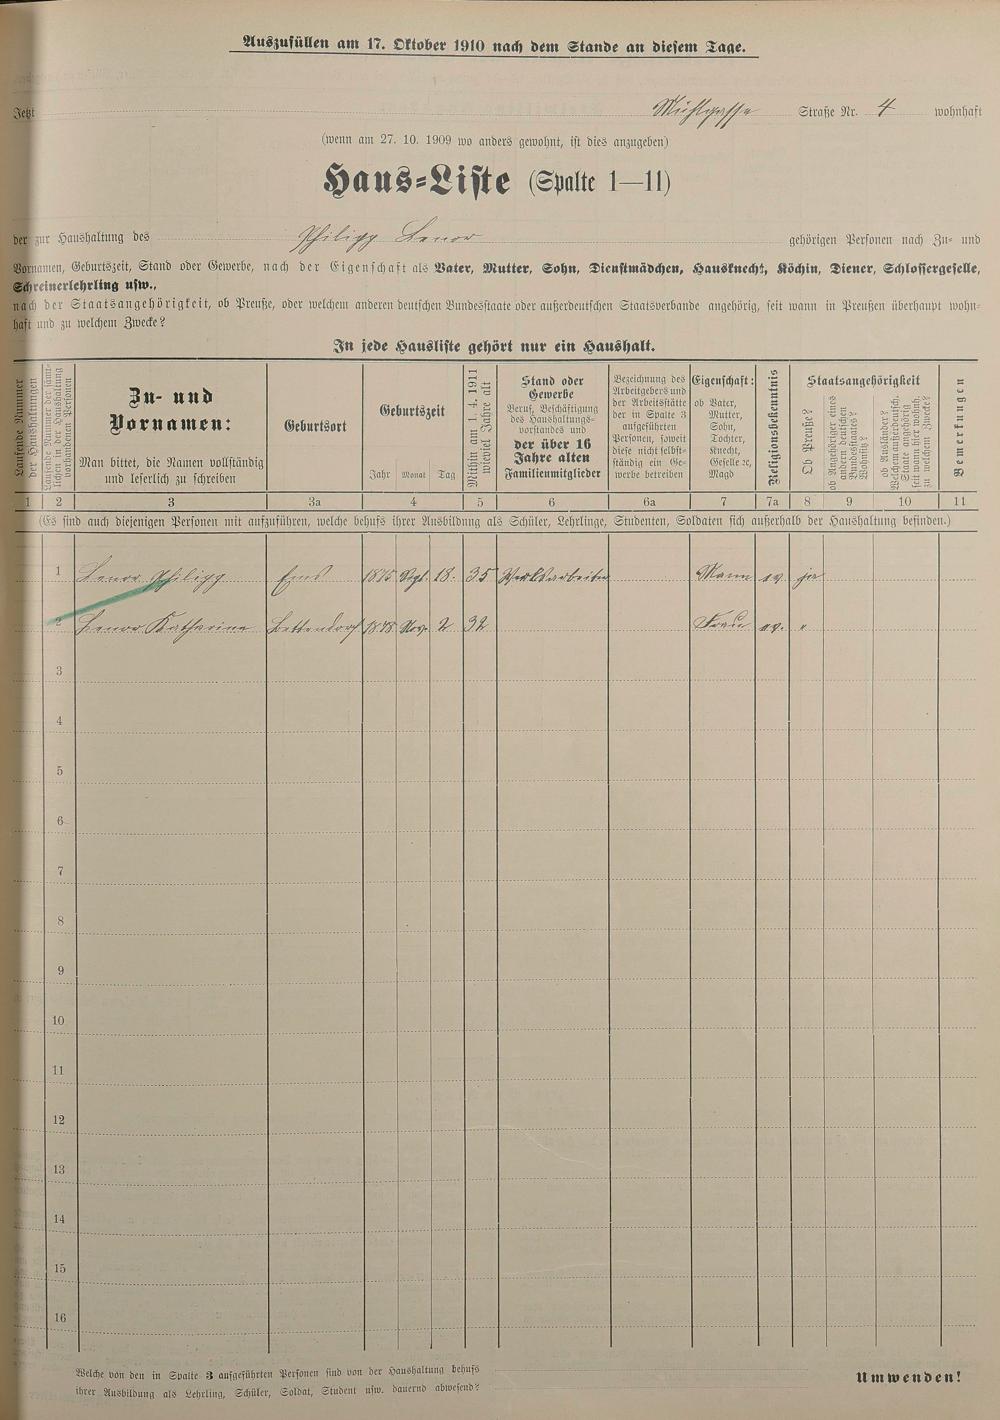 Auszufüllen am 17. Oktober 1910 nach dem Stande an diesem Tage.
Jetzt Mühlgasse Straße Nr. 4 wohnhaft
(wenn am 27. 10. 1909 wo anders gewohnt, ist dies anzugeben)
Haus-Liste (Spalte 1—11)
der zur Haushaltung des Philipp Lenor gehörigen Personen nach Zu- und
Vornamen, Geburtszeit, Stand oder Gewerbe, nach der Eigenschaft als Vater, Mutter, Sohn, Dienstmädchen, Hausknecht, Köchin, Diener, Schlossergeselle,
Schreinerlehrling usw.,
nach der Staatsangehörigkeit, ob Preuße, oder welchem anderen deutschen Bundesstaate oder außerdeutschen Staatsverbande angehörig, seit wann in Preußen überhaupt wohn-
haft und zu welchem Zwecke?
In jede Hausliste gehört nur ein Haushalt.
Laufende Nummer
der Haushaltungen
Laufende Nummer der sämt-
lichen in der Haushaltung
vorhandenen Personen
Zu- und
Vornamen:
Man bittet, die Namen vollständig
und leserlich zu schreiben
Geburtsort
Geburtszeit
Jahr Monat Tag
Mithin am 1. 4. 1911
wieviel Jahre alt
Stand oder
Gewerbe
Beruf, Beschäftigung
des Haushaltungs-
vorstandes und
der über 16
Jahre alten
Familienmitglieder
Bezeichnung des
Arbeitgebers und
der Arbeitsstätte
der in Spalte 3
aufgeführten
Personen, soweit
diese nicht selbst-
ständig ein Ge-
werbe betreiben
Eigenschaft:
ob Vater,
Mutter,
Sohn,
Tochter,
Knecht,
Geselle ec,
Magd
Religionsbekenntnis
Staatsangehörigkeit
Ob Preuße?
ob Angehöriger eines
andern deutschen
Bundesstaates?
Wohnsitz?
ob Ausländer?
Welchem außerdeutsch.
Staate angehörig
seit wann hier wohnh.
zu welchem Zwecke?
Bemerkungen
1 2 3 3a 4 5 6 6a 7 7a 8 9 10 11
(Es sind auch diejenigen Personen mit aufzuführen, welche behufs ihrer Ausbildung als Schüler, Lehrlinge, Studenten, Soldaten sich außerhalb der Haushaltung befinden.)
1 Lenor Philipp Ems 1875 Sept. 18. 35 Werksarbeiter Mann ev. ja
2 Lenor Katharine Bettendorf 1878 Nov. 2 32 Frau ev. "
3
4
5
6
7
8
9
10
11
12
13
14
15
16
Welche von den in Spalte 3 aufgeführten Personen sind von der Haushaltung behufs
ihrer Ausbildung als Lehrling, Schüler, Soldat, Student usw. dauernd abwesend?
Umwenden!